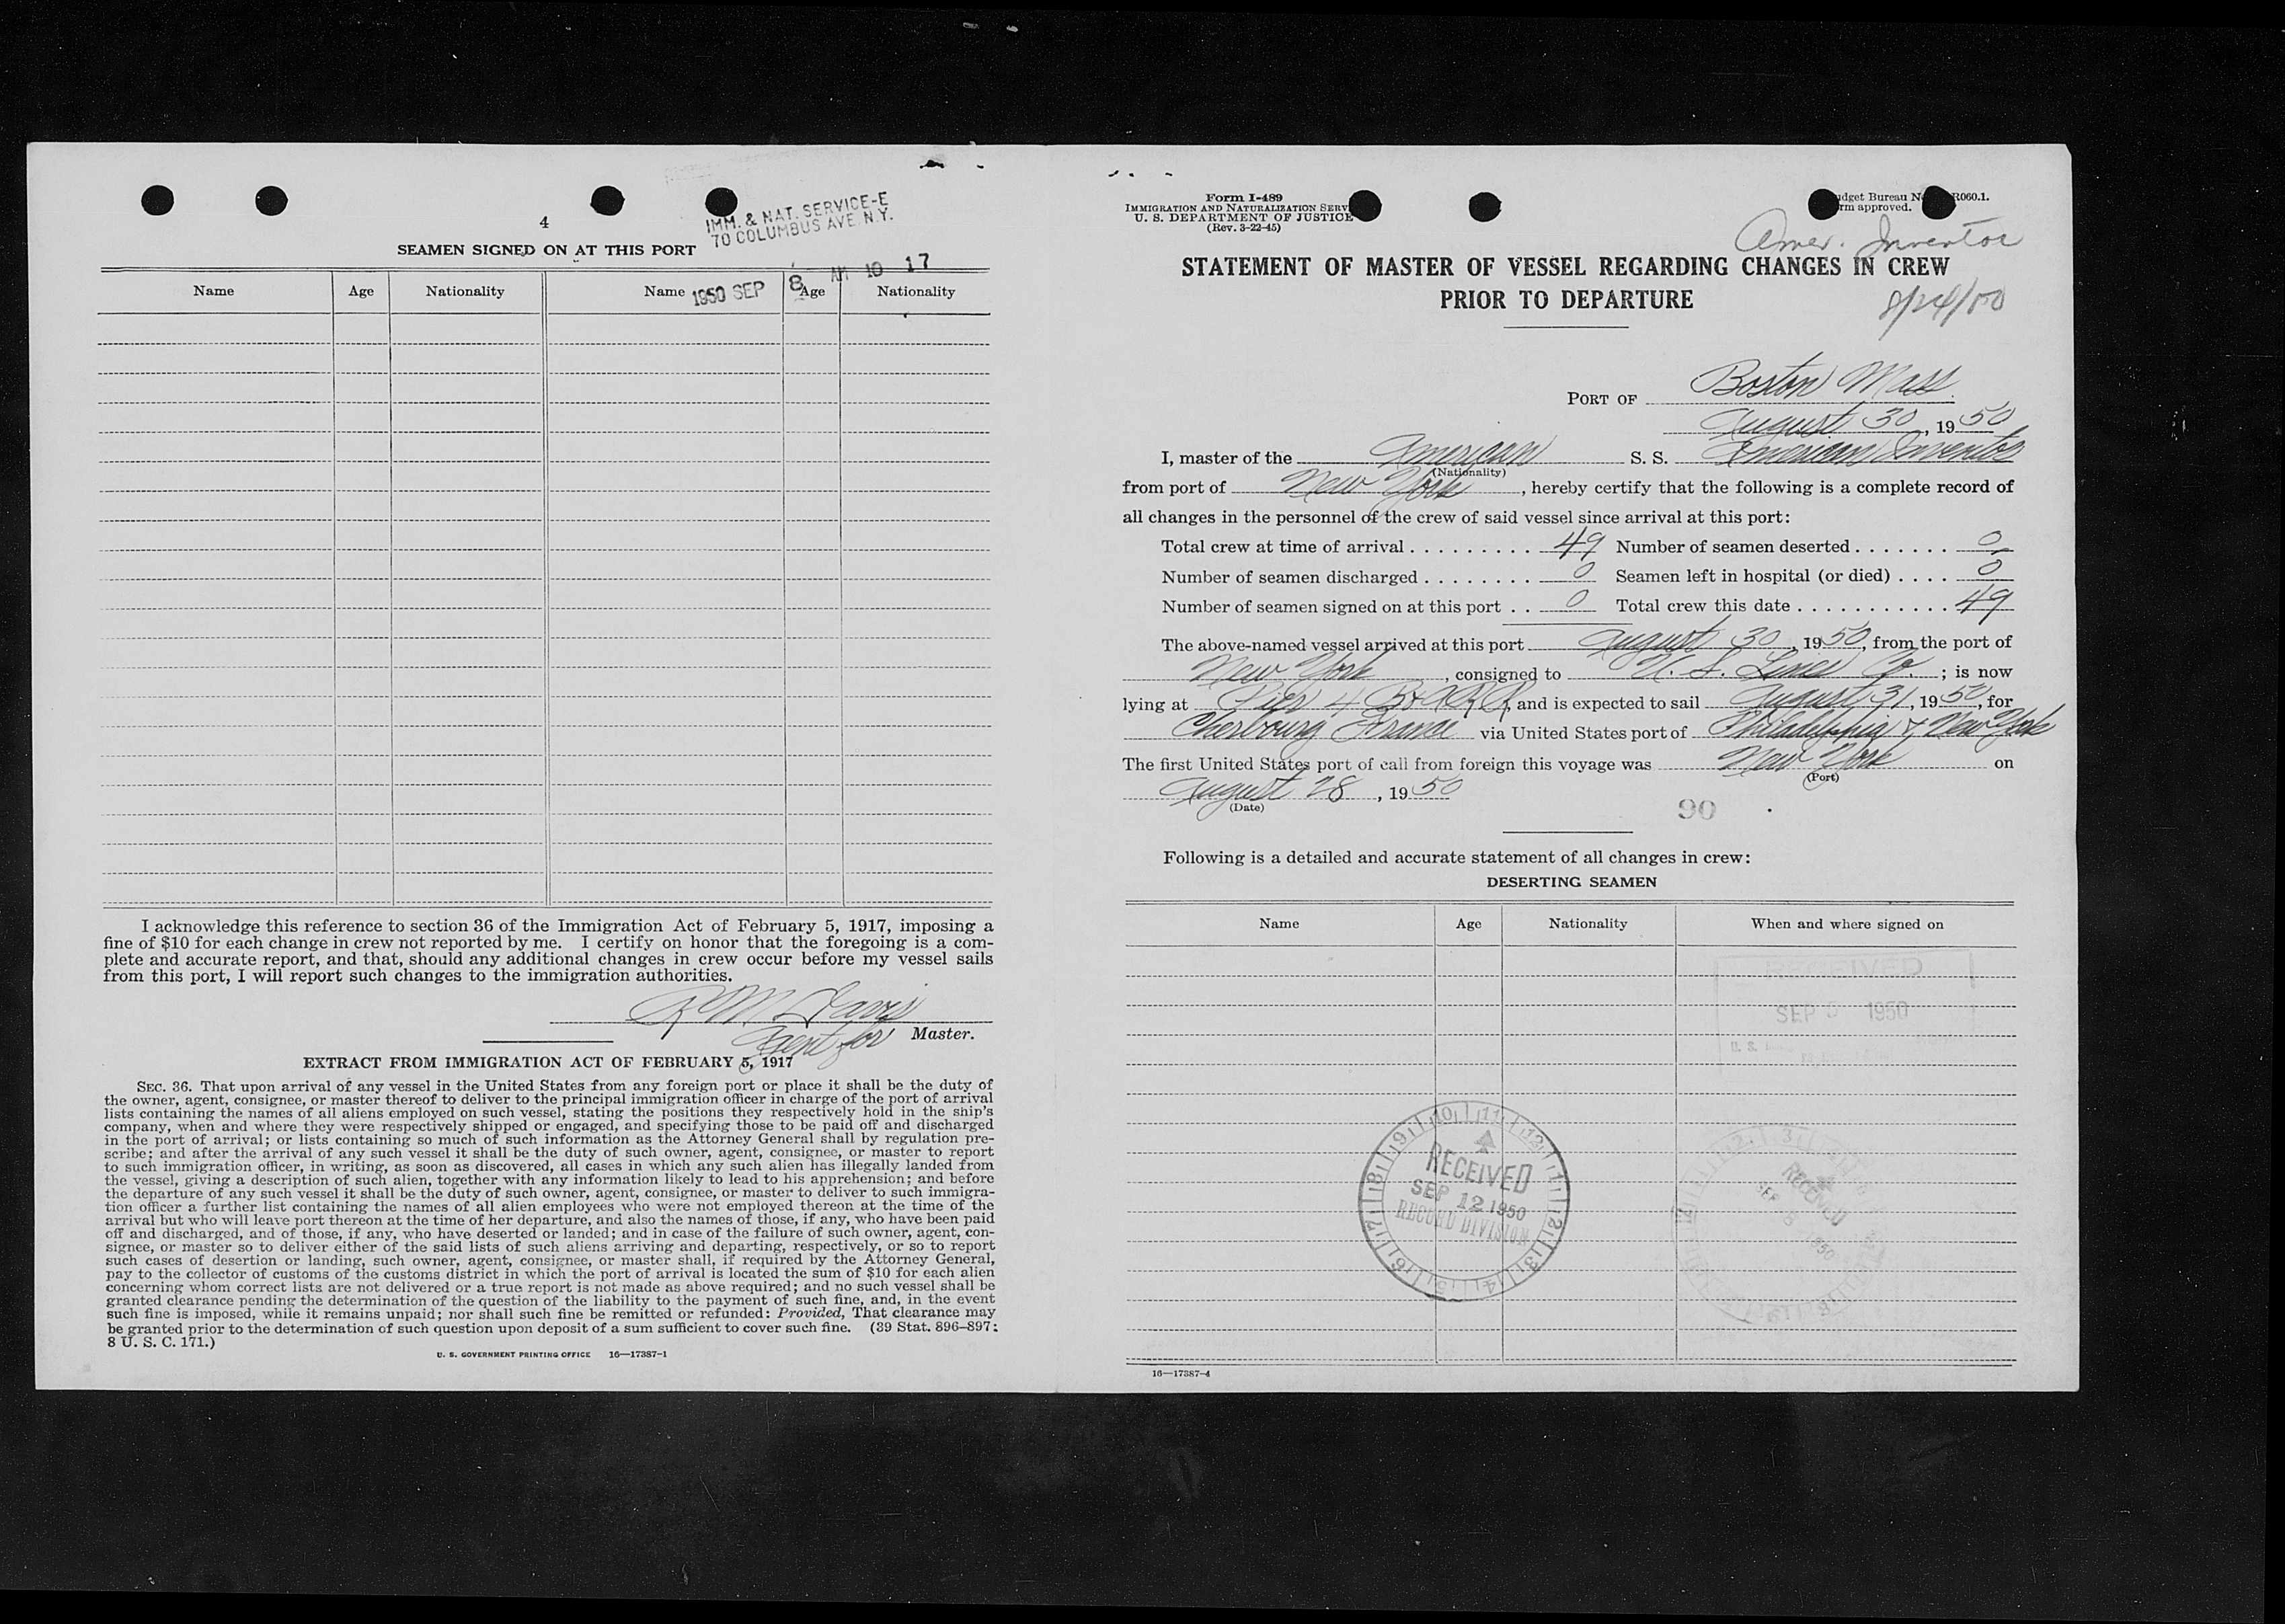 4
IMM. & NAT. SERVICE-E
70 COLUMBUS AVE N.Y.
SEAMEN SIGNED ON AT THIS PORT
1950 SEP 8 AM 10 17
Name Age Nationality Name Age Nationality
I acknowledge this reference to section 36 of the Immigration Act of February 5, 1917, imposing a
fine of $10 for each change in crew not reported by me. I certify on honor that the foregoing is a com-
plete and accurate report, and that, should any additional changes in crew occur before my vessel sails
from this port, I will report such changes to the immigration authorities.
R M Davis
Agent for Master.
EXTRACT FROM IMMIGRATION ACT OF FEBRUARY 5, 1917
SEC. 36. That upon arrival of any vessel in the United States from any foreign port or place it shall be the duty of
the owner, agent, consignee, or master thereof to deliver to the principal immigration officer in charge of the port of arrival
lists containing the names of all aliens employed on such vessel, stating the positions they respectively hold in the ship's
company, when and where they were respectively shipped or engaged, and specifying those to be paid off and discharged
in the port of arrival; or lists containing so much of such information as the Attorney General shall by regulation pre-
scribe; and after the arrival of any such vessel it shall be the duty of such owner, agent, consignee, or master to report
to such immigration officer, in writing, as soon as discovered, all cases in which any such alien has illegally landed from
the vessel, giving a description of such alien, together with any information likely to lead to his apprehension; and before
the departure of any such vessel it shall be the duty of such owner, agent, consignee, or master to deliver to such immigra-
tion officer a further list containing the names of all alien employees who were not employed thereon at the time of the
arrival but who will leave port thereon at the time of her departure, and also the names of those, if any, who have been paid
off and discharged, and of those, if any, who have deserted or landed; and in case of the failure of such owner, agent, con-
signee, or master so to deliver either of the said lists of such aliens arriving and departing, respectively, or so to report
such cases of desertion or landing, such owner, agent, consignee, or master shall, if required by the Attorney General,
pay to the collector of customs of the customs district in which the port of arrival is located the sum of $10 for each alien
concerning whom correct lists are not delivered or a true report is not made as above required; and no such vessel shall be
granted clearance pending the determination of the question of the liability to the payment of such fine, and, in the event
such fine is imposed, while it remains unpaid; nor shall such fine be remitted or refunded: Provided, That clearance may
be granted prior to the determination of such question upon deposit of a sum sufficient to cover such fine. (39 Stat. 896-897;
8 U. S. C. 171.)
U. S. GOVERNMENT PRINTING OFFICE 16—17387-1
Form I-489
IMMIGRATION AND NATURALIZATION SERV
U. S. DEPARTMENT OF JUSTICE
(Rev. 3-22-45)
udget Bureau N R060.1.
rm approved.
Amer. Inventor
STATEMENT OF MASTER OF VESSEL REGARDING CHANGES IN CREW
PRIOR TO DEPARTURE
PORT OF Boston Mass.
August 30, 1950
I, master of the American S. S. American Inventor
(Nationality)
from port of New York, hereby certify that the following is a complete record of
all changes in the personnel of the crew of said vessel since arrival at this port:
Total crew at time of arrival . . . . . . . . . 49 Number of seamen deserted . . . . . . . 0
Number of seamen discharged . . . . . . . . 0 Seamen left in hospital (or died) . . . . 0
Number of seamen signed on at this port . . 0 Total crew this date . . . . . . . . . . . 49
The above-named vessel arrived at this port August 30, 1950, from the port of
New York, consigned to U. S. Lines Co.; is now
lying at Pier 4 B & A RR, and is expected to sail August 31, 1950, for
Cherbourg France via United States port of Philadelphia & New York
The first United States port of call from foreign this voyage was New York on
(Port)
August 28, 1950
(Date)
90
Following is a detailed and accurate statement of all changes in crew:
DESERTING SEAMEN
Name Age Nationality When and where signed on
RECEIVED
SEP 5 1950
U. S.
RECEIVED
SEP 12 1950
RECORD DIVISION
RECEIVED
SEP 1950
16—17387-4